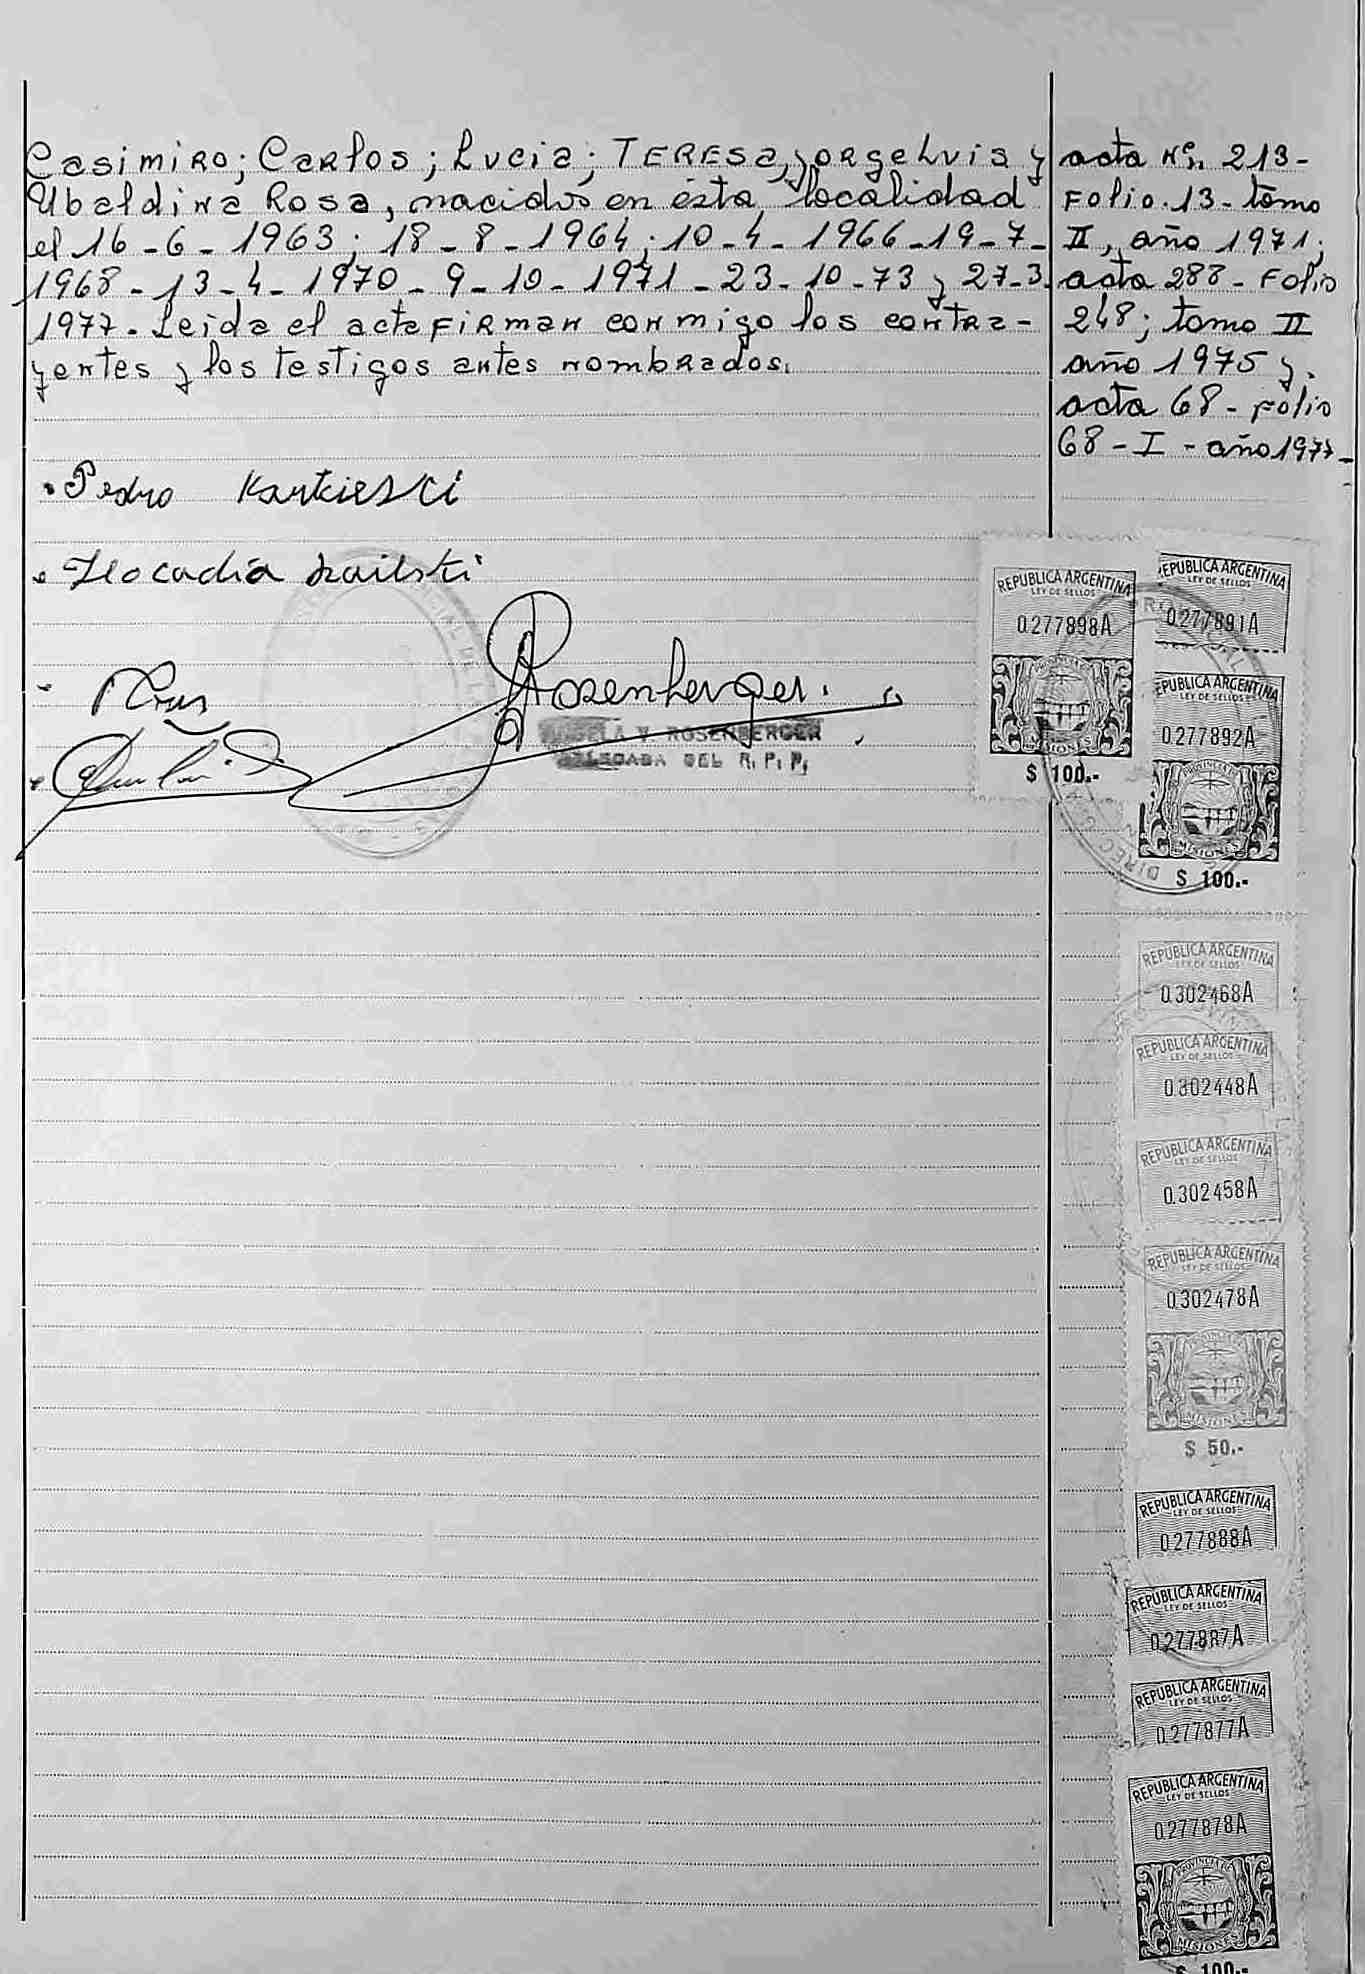 Casimiro; Carlos; Lucia; TERESA, Jorge Luis y
Ubaldina Rosa, nacidos en ésta localidad
el 16-6-1963; 18-8-1964; 10-4-1966-19-7-
1968-13-4-1970-9-10-1971-23-10-73 y 27-3-
1977- Leida el acta FIRMAN conmigo los contra-
yentes y los testigos antes nombrados.
acta Nº. 213-
Folio.13-tomo
II, año 1971;
acta 288-Folio
248; tomo II
año 1975 y.
acta 68-folio
68-I-año 1977-
Pedro
Rosenberger.
ANGELA V. ROSENBERGER
DELEGADA DEL R. P. P.
REPUBLICA ARGENTINA
LEY DE SELLOS
0.277898A
PROVINCIA DE
MISIONES
$ 100.-
REPUBLICA ARGENTINA
LEY DE SELLOS
0.277891A
REPUBLICA ARGENTINA
LEY DE SELLOS
0.277892A
PROVINCIA DE
MISIONES
$ 100.-
REPUBLICA ARGENTINA
LEY DE SELLOS
0.302468A
REPUBLICA ARGENTINA
LEY DE SELLOS
0.302448A
REPUBLICA ARGENTINA
LEY DE SELLOS
0.302458A
REPUBLICA ARGENTINA
LEY DE SELLOS
0.302478A
PROVINCIA DE
MISIONES
$ 50.-
REPUBLICA ARGENTINA
LEY DE SELLOS
0.277888A
REPUBLICA ARGENTINA
LEY DE SELLOS
0.277887A
REPUBLICA ARGENTINA
LEY DE SELLOS
0.277877A
REPUBLICA ARGENTINA
LEY DE SELLOS
0.277878A
PROVINCIA DE
MISIONES
$ 100.-